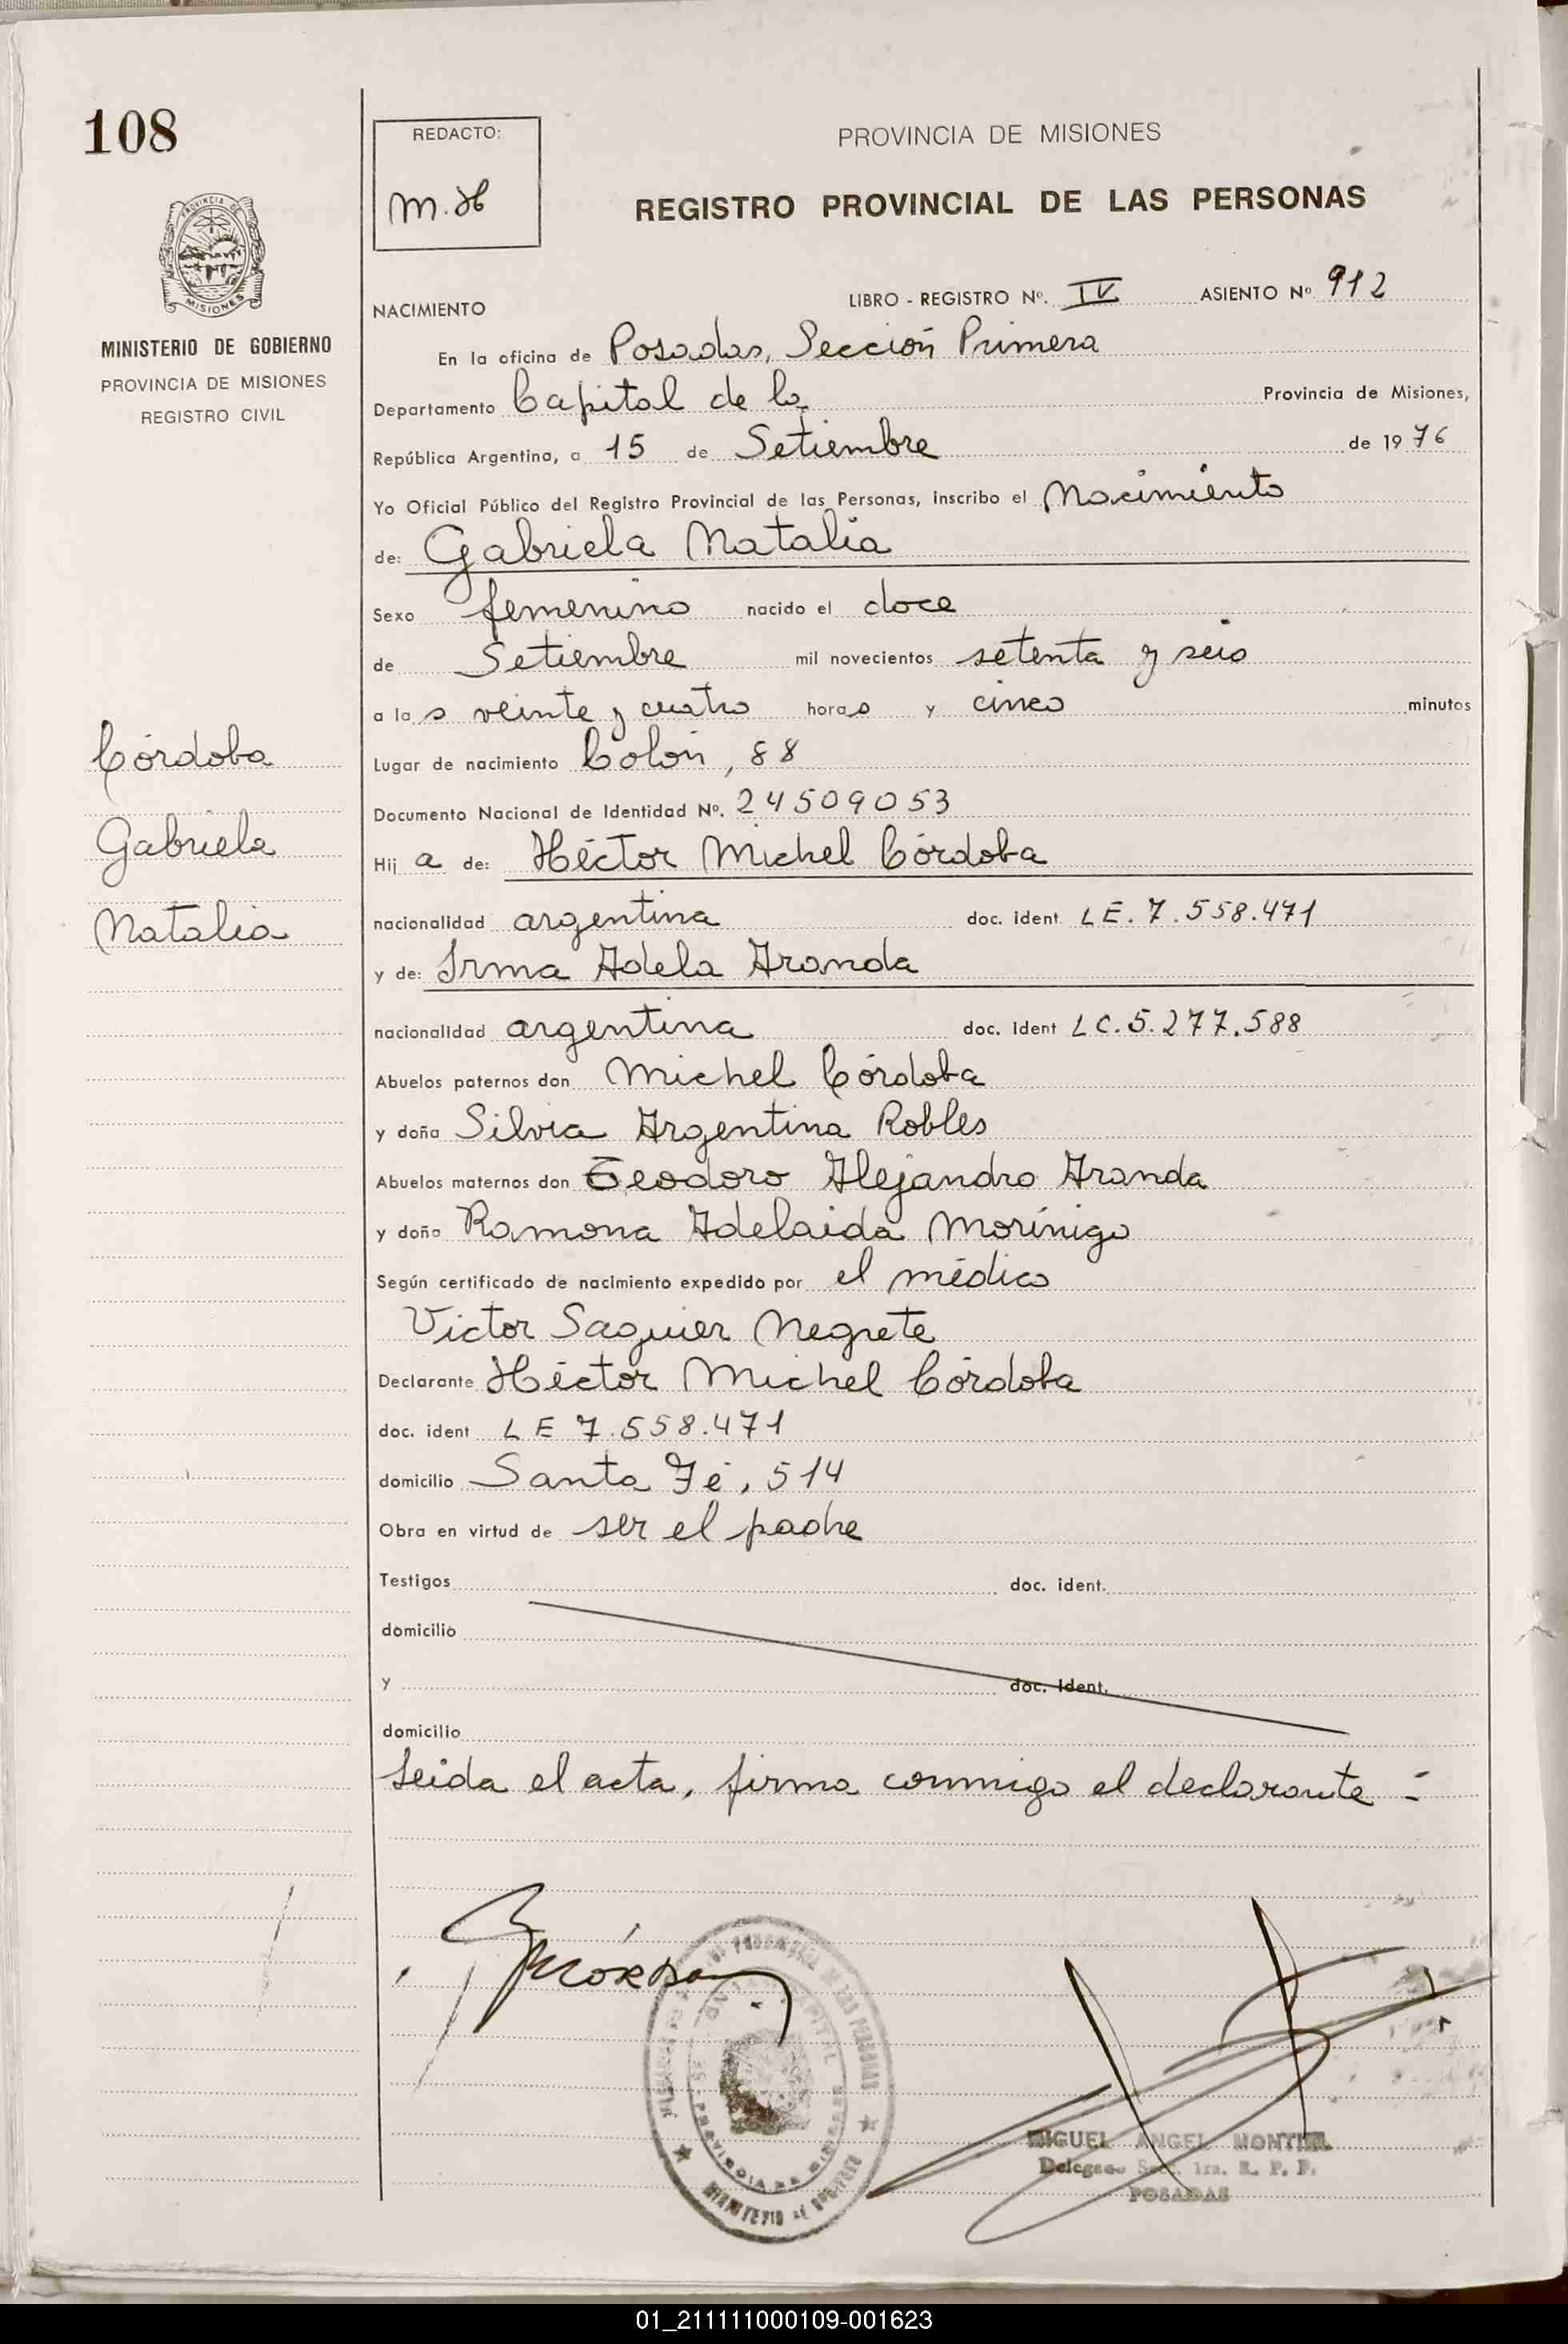 108
REDACTO:
M.H
PROVINCIA DE MISIONES
REGISTRO PROVINCIAL DE LAS PERSONAS
PROVINCIA DE
MISIONES
MINISTERIO DE GOBIERNO
PROVINCIA DE MISIONES
REGISTRO CIVIL
NACIMIENTO LIBRO - REGISTRO Nº. IV ASIENTO Nº 912
En la oficina de Posadas, Sección Primera
Departamento Capital de la Provincia de Misiones,
República Argentina, a 15 de Setiembre de 1976
Yo Oficial Público del Registro Provincial de las Personas, inscribo el Nacimiento
de: Gabriela Natalia
Sexo femenino nacido el doce
de Setiembre mil novecientos setenta y seis
a las veinte y cuatro horas y cinco minutos
Lugar de nacimiento Colón, 88
Documento Nacional de Identidad Nº. 24509053
Hija de: Héctor Michel Córdoba
nacionalidad argentina doc. ident. LE. 7.558.471
y de: Irma Adela Aranda
nacionalidad argentina doc. ident LC. 5.277.588
Abuelos paternos don Michel Córdoba
y doña Silvia Argentina Robles
Abuelos maternos don Teodoro Alejandro Aranda
y doña Ramona Adelaida Morínigo
Según certificado de nacimiento expedido por el médico
Victor Saguier Negrete
Declarante Héctor Michel Córdoba
doc. ident LE 7.558.471
domicilio Santa Fé, 514
Obra en virtud de ser el padre
Testigos doc. ident.
domicilio
y doc. ident.
domicilio
Leida el acta, firma conmigo el declarante :
Córdoba
Gabriela
Natalia
MIGUEL ANGEL
Delegado Secc. 1ra. R. P. P.
POSADAS
01_211111000109-001623